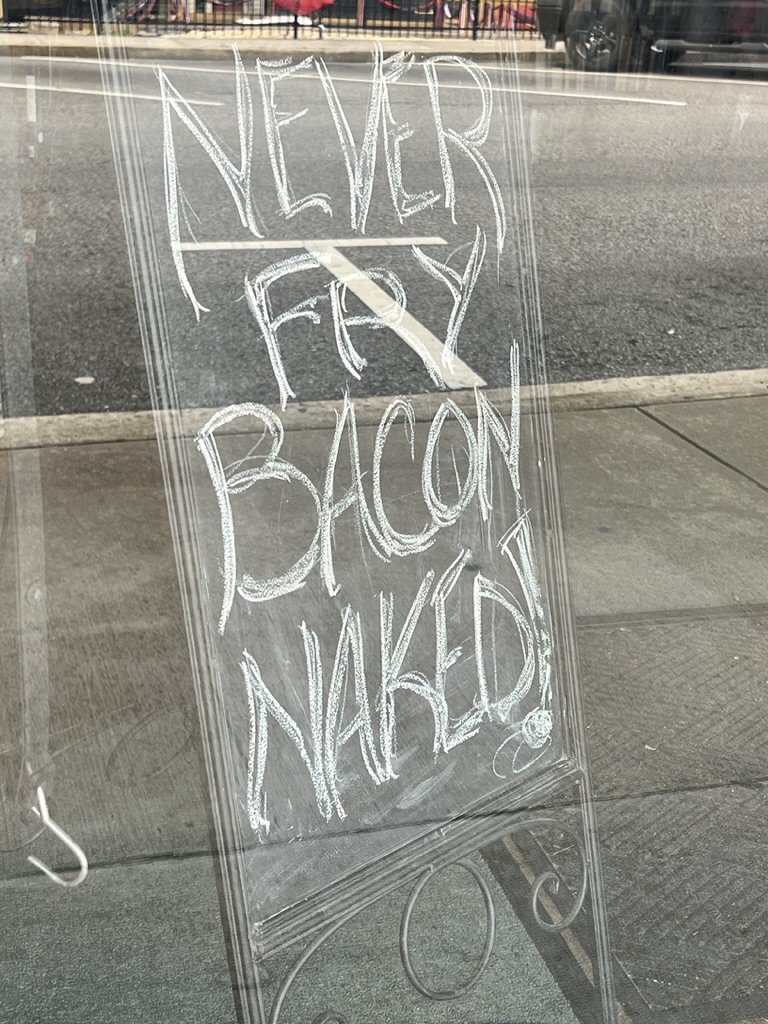 NEVER
FRY
BACON
NAKED!